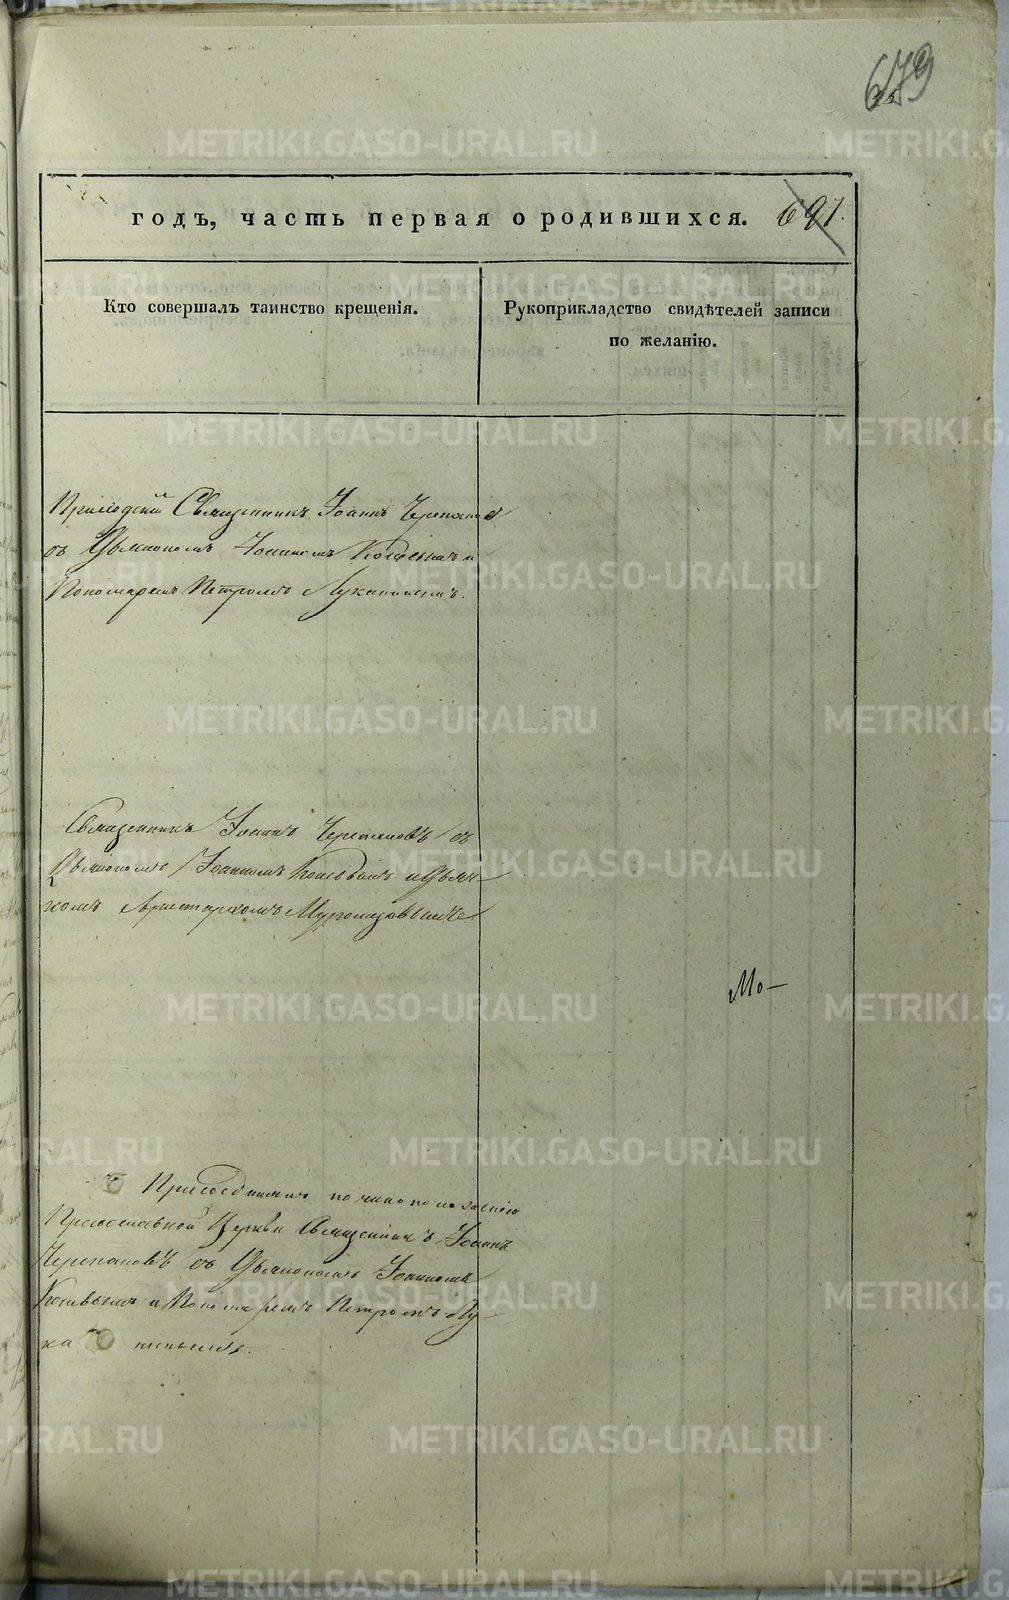 679
годъ, часть первая о родившихся. 691.
Кто совершалъ таинство крещенія.
Рукоприкладство свидѣтелей записи
по желанію.
Приходскій Священникъ Іоаннъ Черепановъ
съ Діакономъ Іоанномъ
Пономаремъ Петромъ Луканинымъ.
Священникъ Іоаннъ Черепановъ съ
Діакономъ Іоанномъ и Дьяч-
комъ Аристархомъ
Мо-
Присоединилъ по чиноположенію
Православной Церкви Священникъ Іоаннъ
Черепановъ съ Діакономъ Іоанномъ
и Пономаремъ Петромъ Лу-
ка ниным.
METRIKI.GASO-URAL.RU